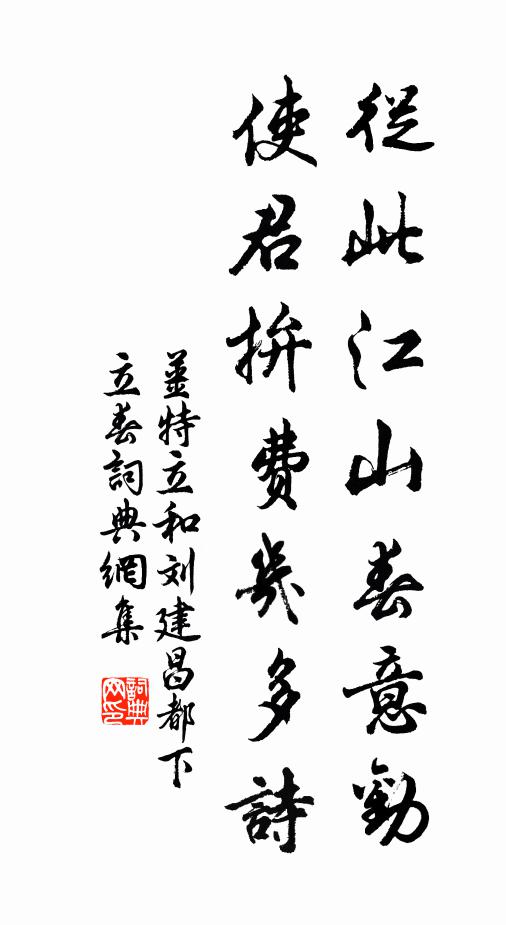 從此江山春意勤
使君拚費幾多詩
姜特立和刘建昌都下
立春詞典網集
詞典
网印